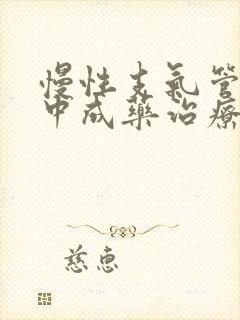 慢性支氣管
中成藥治療
慈惠